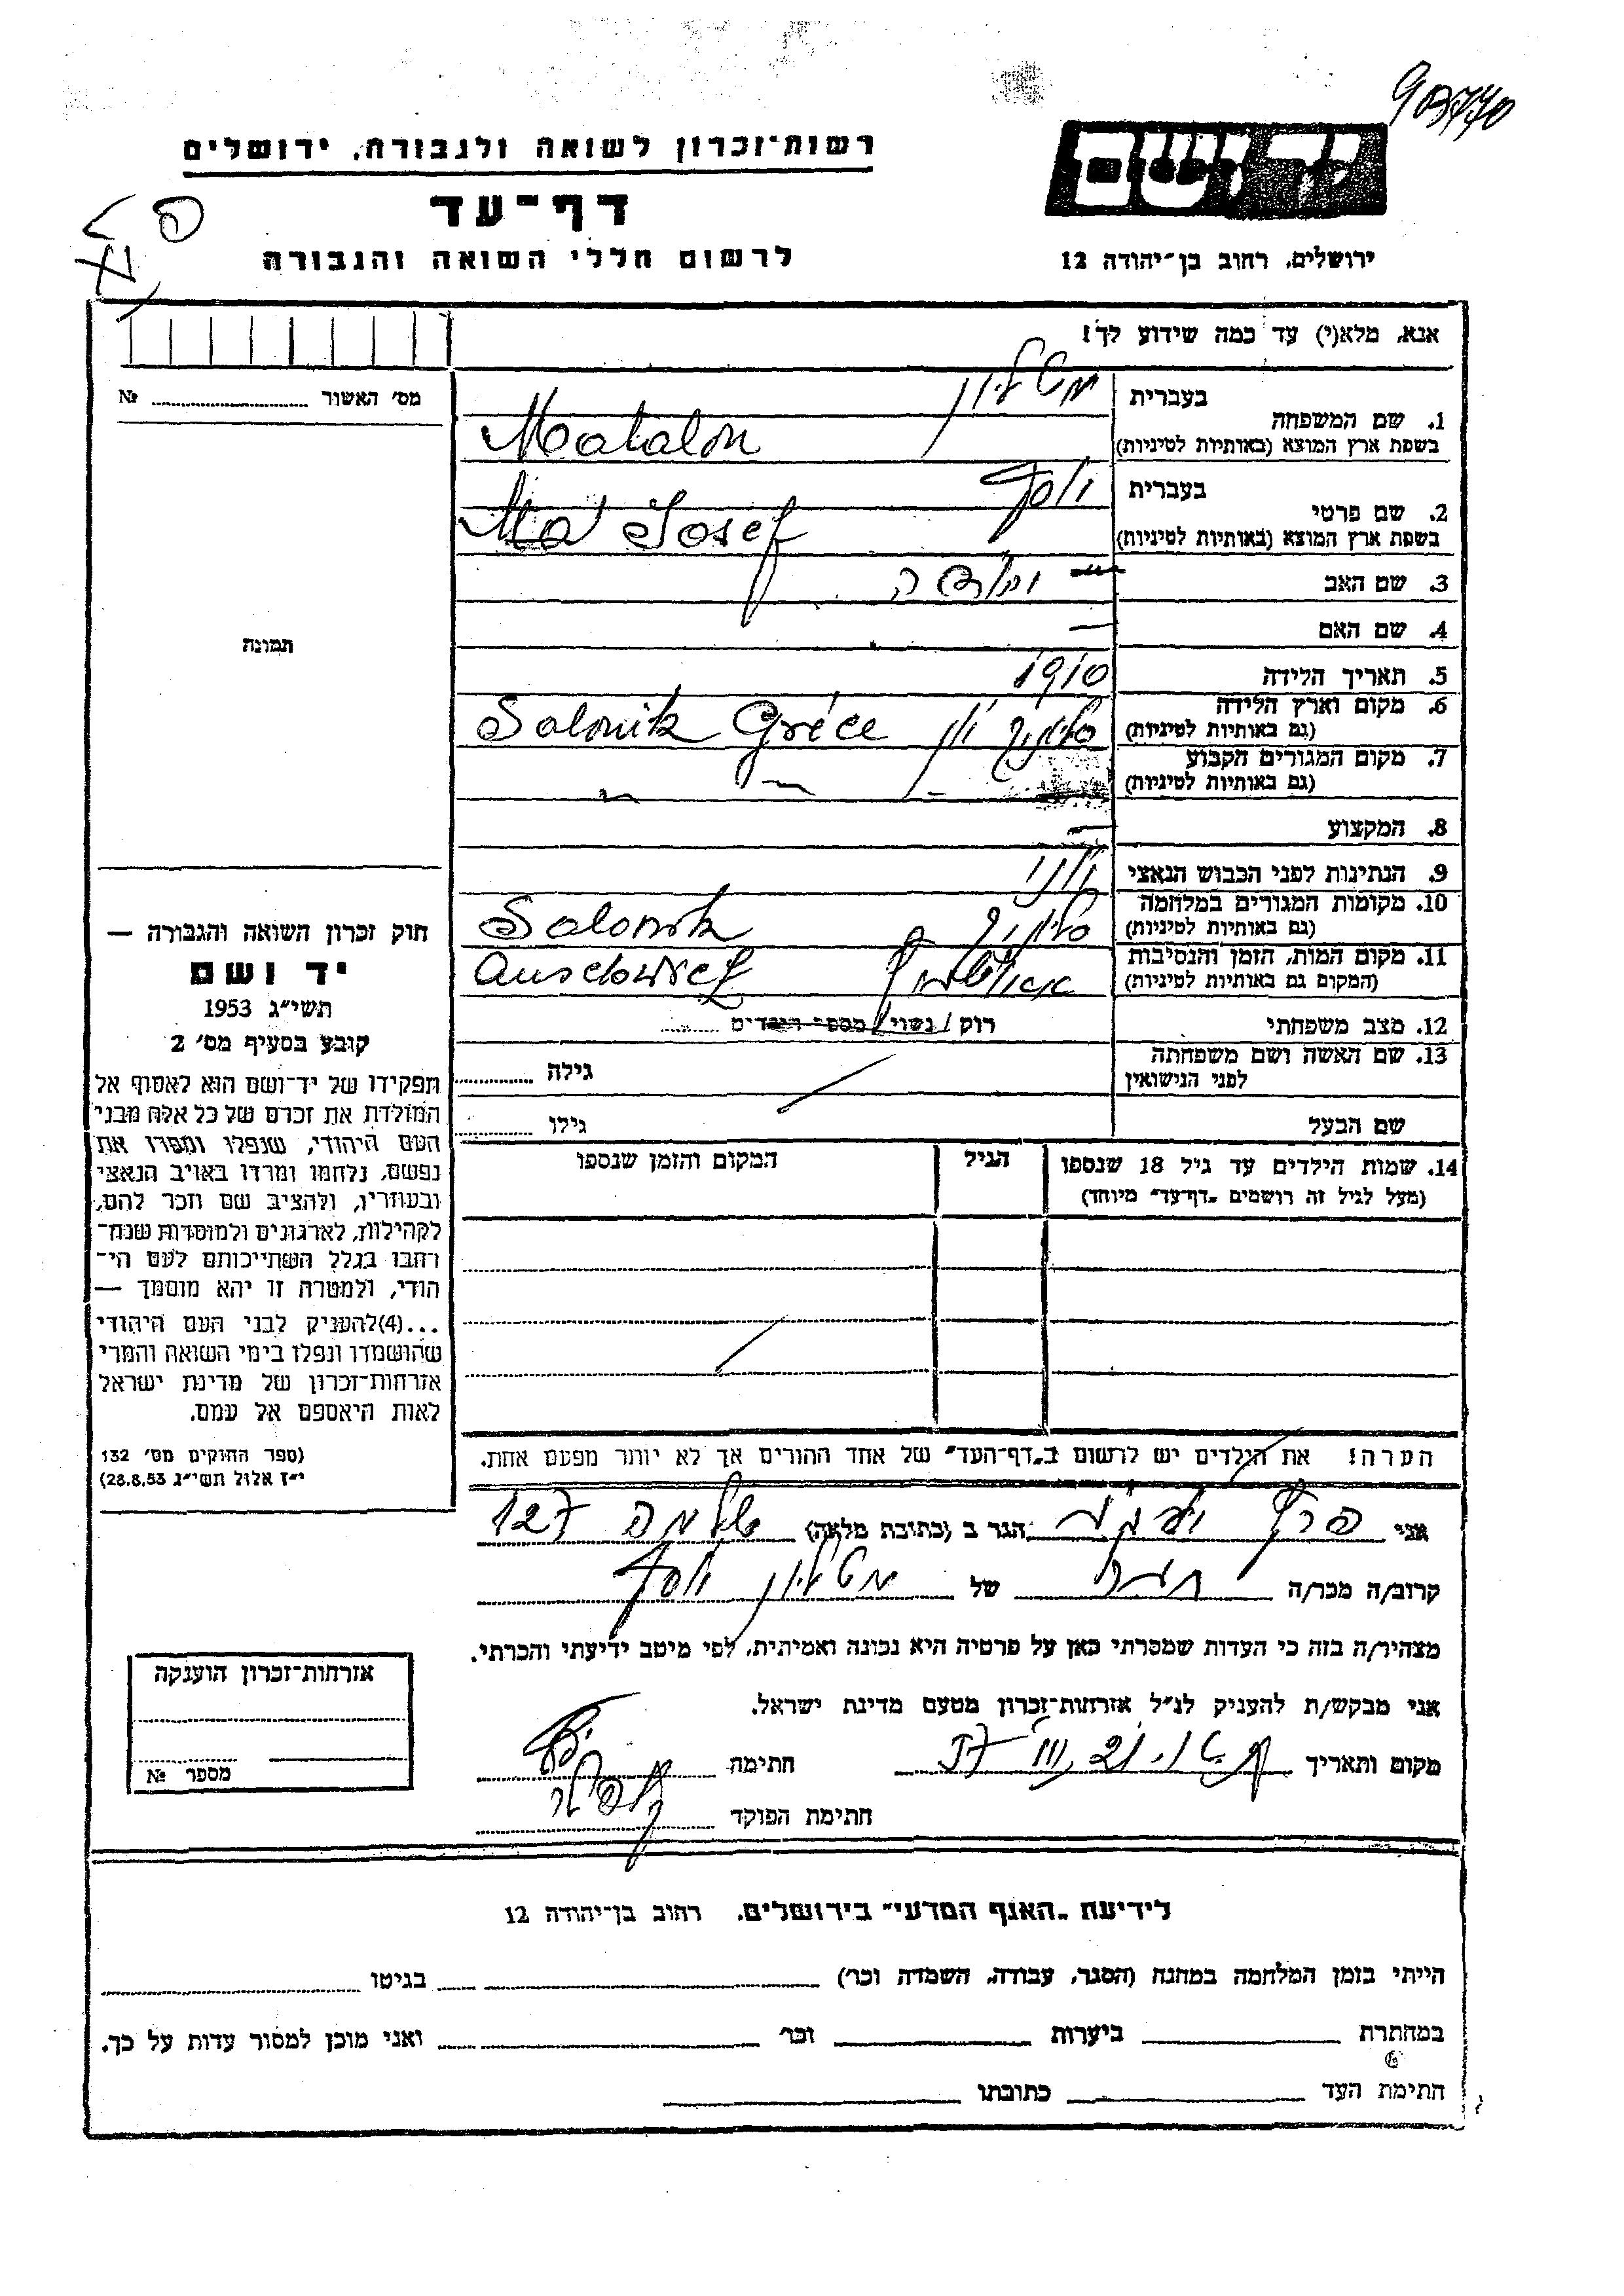 903770
יד ושם
רשות-זכרון לשואה ולגבורה, ירושלים
דף-עד
לרשום חללי השואה והגבורה
ירושלים, רחוב בן-יהודה 12
אנא, מלא(י) עד כמה שידוע לך!
מס' האשור № 
1. שם המשפחה בעברית מטלון
בשפת ארץ המוצא (באותיות לטיניות) Matalon
2. שם פרטי בעברית יוסף
בשפת ארץ המוצא (באותיות לטיניות) Josef
3. שם האב
4. שם האם —
תמונה
5. תאריך הלידה 1910
6. מקום וארץ הלידה (גם באותיות לטיניות) סלוניק יון Salonik Gréce
7. מקום המגורים הקבוע (גם באותיות לטיניות)
8. המקצוע —
9. הנתינות לפני הכבוש הנאצי יוני
10. מקומות המגורים במלחמה (גם באותיות לטיניות) סלוניק Salonik
11. מקום המות, הזמן והנסיבות (המקום גם באותיות לטיניות)
12. מצב משפחתי רוק / נשוי / מספר הילדים
13. שם האשה ושם משפחתה לפני הנישואין גילה
שם הבעל גילו
14. שמות הילדים עד גיל 18 שנספו הגיל המקום והזמן שנספו
(מעל לגיל זה רושמים "דף-עד" מיוחד)
חוק זכרון השואה והגבורה —
יד ושם
תשי"ג 1953
קובע בסעיף מס' 2
תפקידו של יד-ושם הוא לאסוף אל
המולדת את זכרם של כל אלה מבני
העם היהודי, שנפלו ומסרו את
נפשם, נלחמו ומרדו באויב הנאצי
ובעוזריו, ולהציב שם וזכר להם,
לקהילות, לארגונים ולמוסדות שנח-
רבו בגלל השתייכותם לעם הי-
הודי, ולמטרה זו יהא מוסמך —
...(4)להעניק לבני העם היהודי
שהושמדו ונפלו בימי השואה והמרי
אזרחות-זכרון של מדינת ישראל
לאות היאספם אל עמם.
(ספר החוקים מס' 132
י"ז אלול תשי"ג 28.8.53)
הערה! את הילדים יש לרשום ב"דף-העד" של אחד ההורים אך לא יותר מפעם אחת.
אני הגר ב (כתובת מלאה) שלמה 127
קרוב/ה מכר/ה של מטלון יוסף
מצהיר/ה בזה כי העדות שמסרתי כאן על פרטיה היא נכונה ואמיתית, לפי מיטב ידיעתי והכרתי.
אני מבקש/ת להעניק לנ"ל אזרחות-זכרון מטעם מדינת ישראל.
מקום ותאריך חתימה
חתימת הפוקד
אזרחות-זכרון הוענקה
מספר №
לידיעת "האגף המדעי" בירושלים, רחוב בן-יהודה 12
הייתי בזמן המלחמה במחנה (הסגר, עבודה, השמדה וכו') בגיטו
במחתרת ביערות וכו' ואני מוכן למסור עדות על כך.
חתימת העד כתובתו